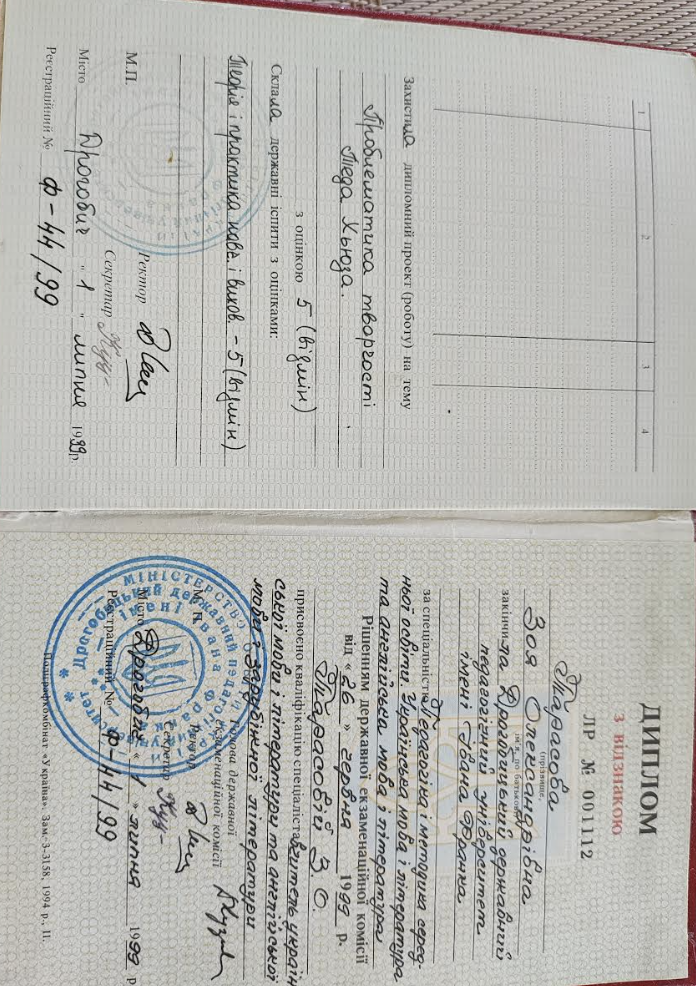 1
2
3
4
Захистила дипломний проект (роботу) на тему
Проблематика творчості
Теда Хьюза.
з оцінкою 5 (відмін)
Склала державні іспити з оцінками:
Теорія і практика навч. і вихов. – 5 (відмін)
М.П.
Ректор
Секретар
Місто Дрогобич "1" липня 1999 р.
Реєстраційний № Ф-44/99
ДИПЛОМ
З ВІДЗНАКОЮ
ЛР № 001112
Тарасова
(прізвище,
Зоя Олександрівна
ім'я, по батькові)
закінчила Дрогобицький державний
педагогічний університет
імені Івана Франка
за спеціальністю Педагогіка і методика серед-
ньої освіти. Українська мова і література
та англійська мова і література
Рішенням державної екзаменаційної комісії
від «26» червня 1999 р.
Тарасовій З.О.
присвоєно кваліфікацію спеціаліста вчитель україн
ської мови і літератури та англійської
мови і зарубіжної літератури
Голова державної
екзаменаційної комісії
М.П.
Ректор
Секретар
Місто Дрогобич «1» липня 1999 р
Реєстраційний № Ф-44/99
Поліграфкомбінат «Україна». Зам. 3-3158. 1994 р., II.
МІНІСТЕРСТВО
Дрогобицький державний педагогічний
імені Івана Франка